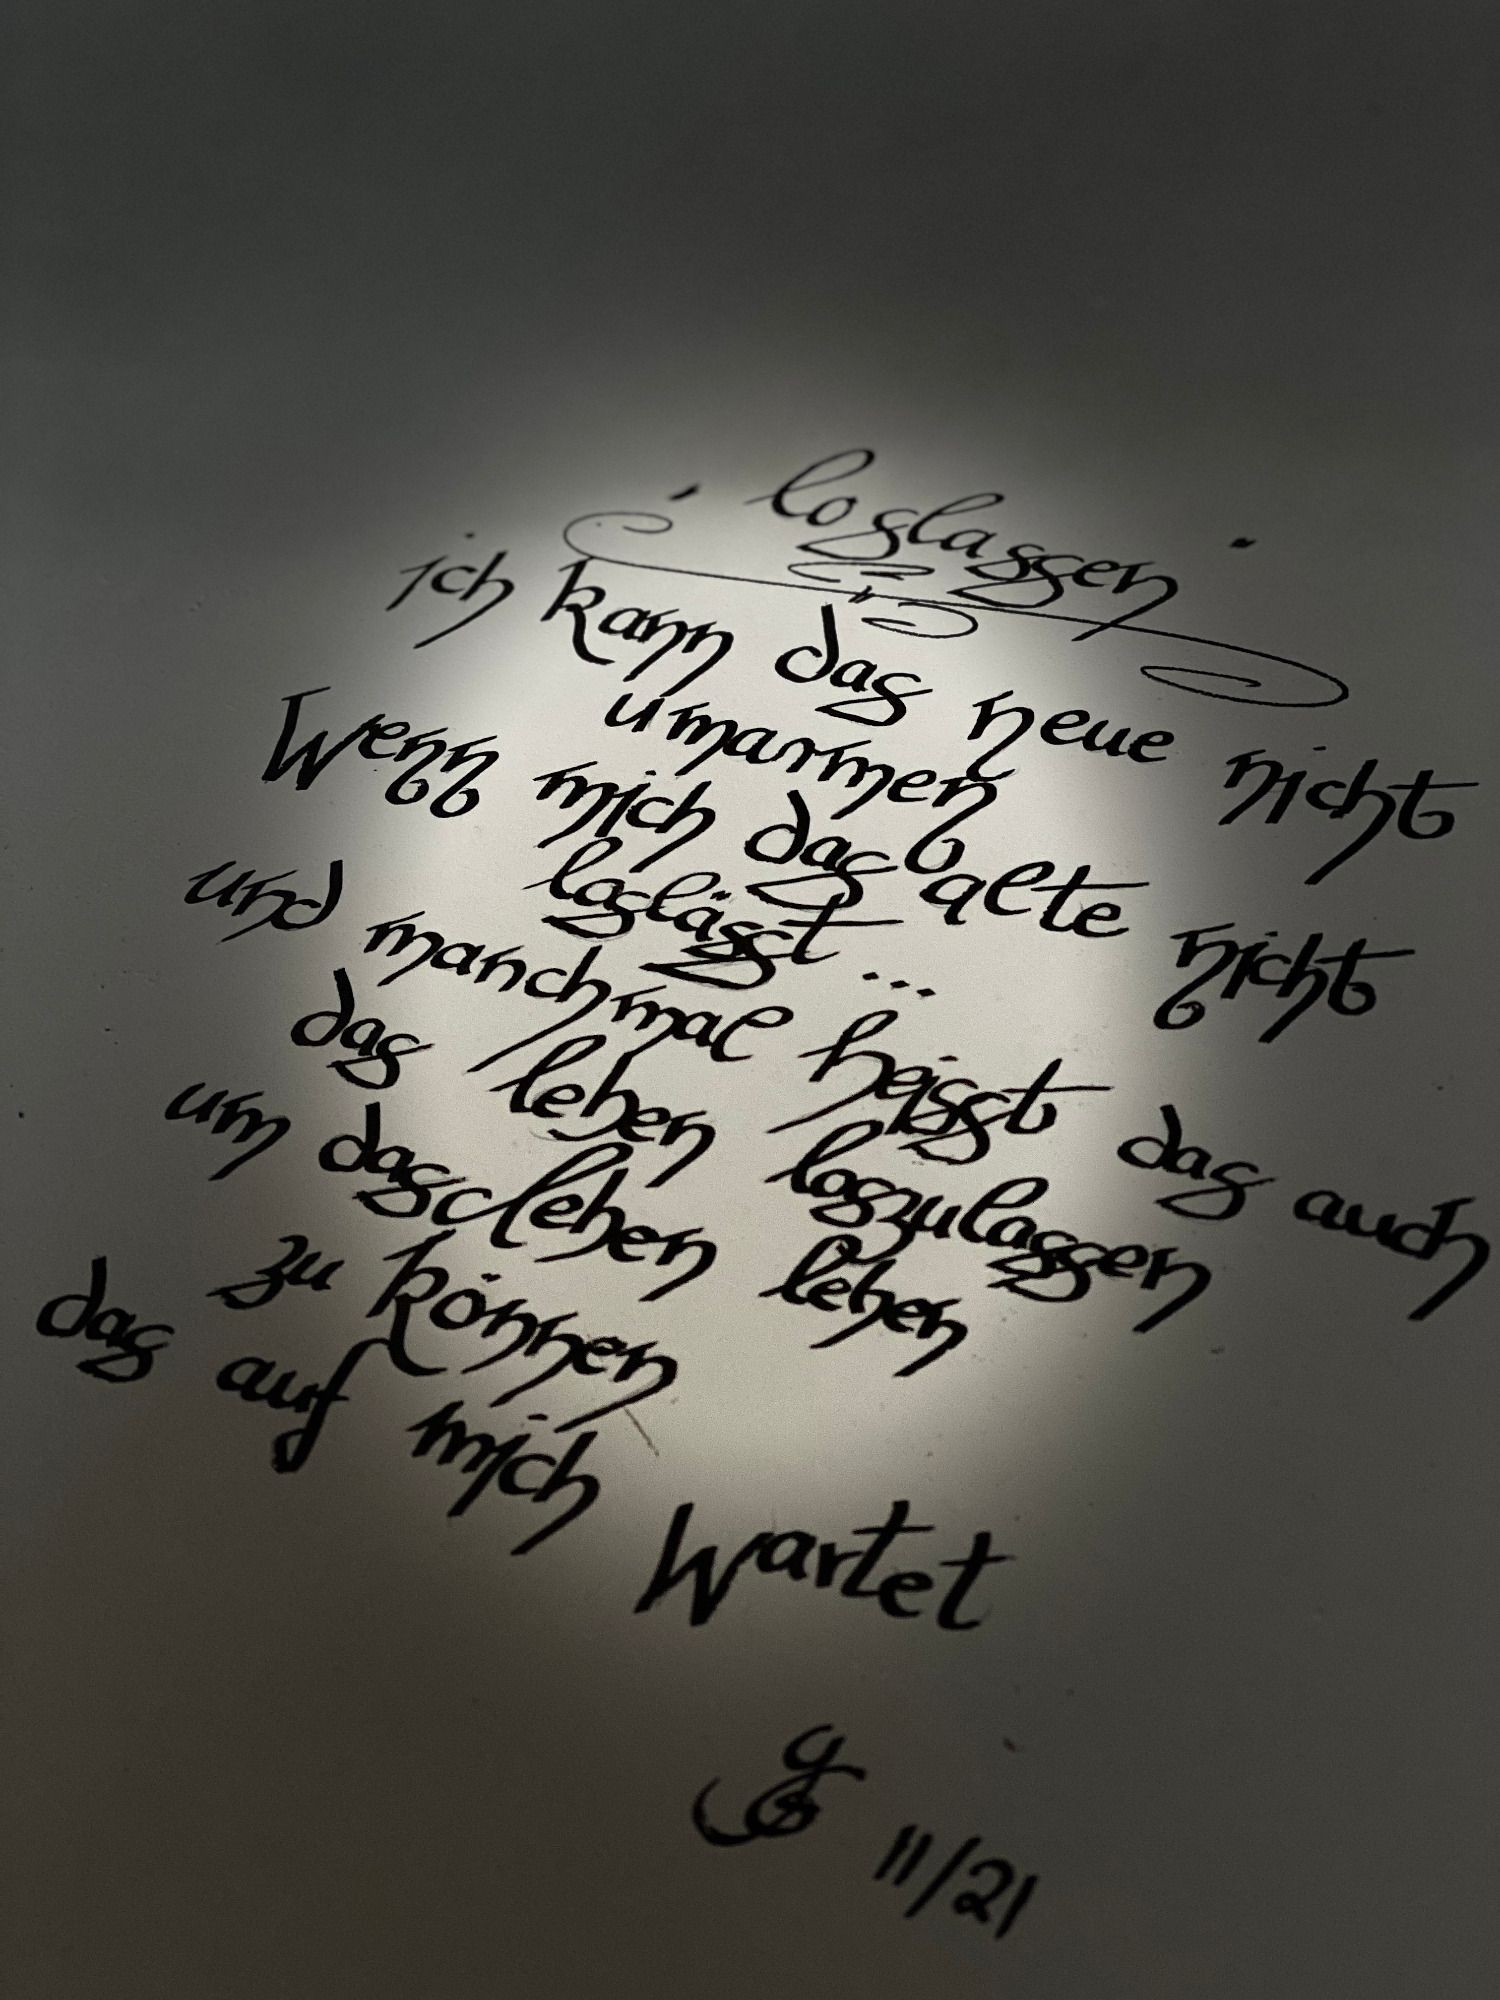 loslassen
ich kann das neue nicht
umarmen
Wenn mich das alte nicht
loslässt ...
und manchmal heisst das auch
das leben loszulassen
um das leben leben
zu können
das auf mich
wartet
11/21